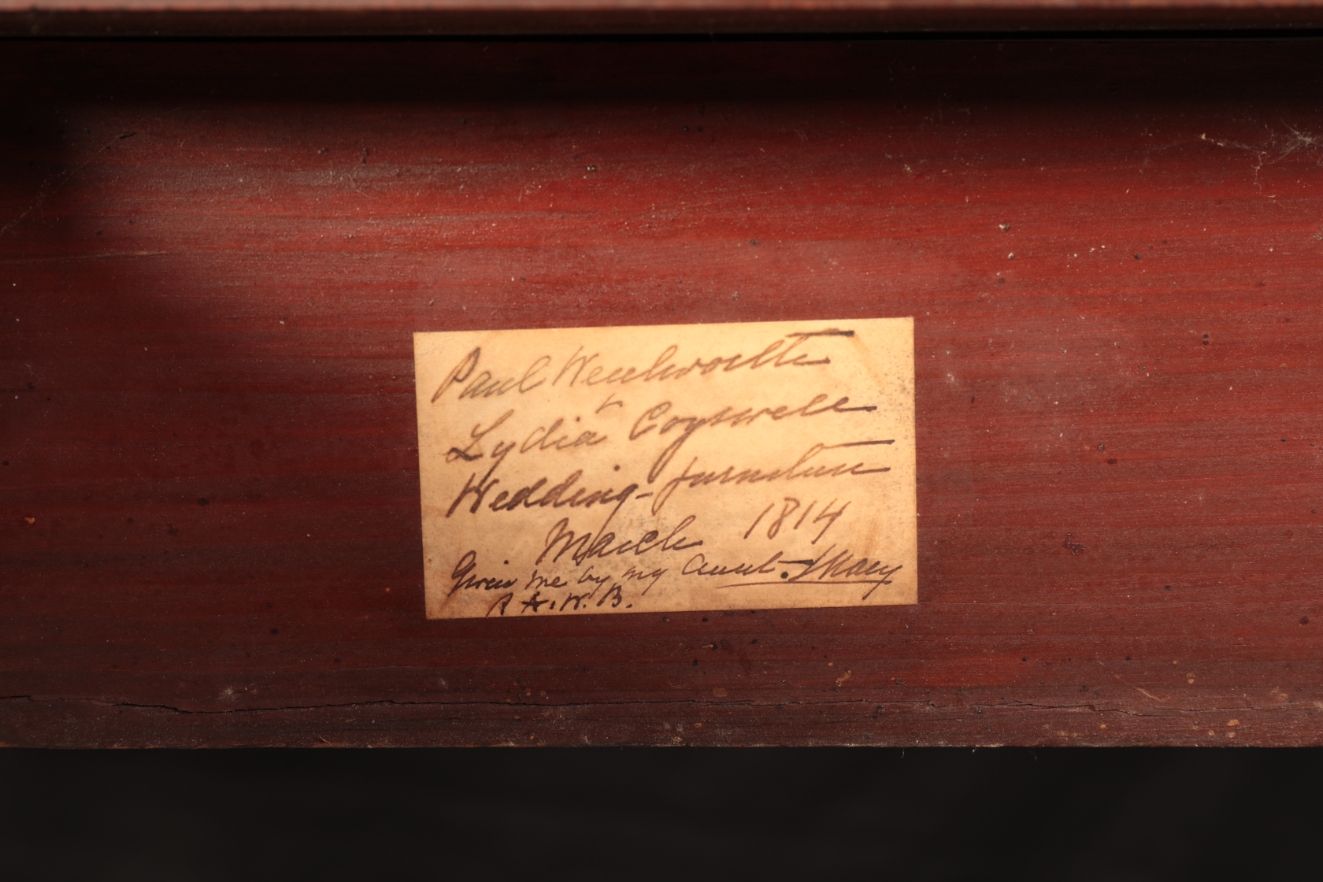 Paul Wentworth
&
Lydia Cogswell
Wedding-furniture
March 1814
Given me by my Aunt. Mary
A. W. B.